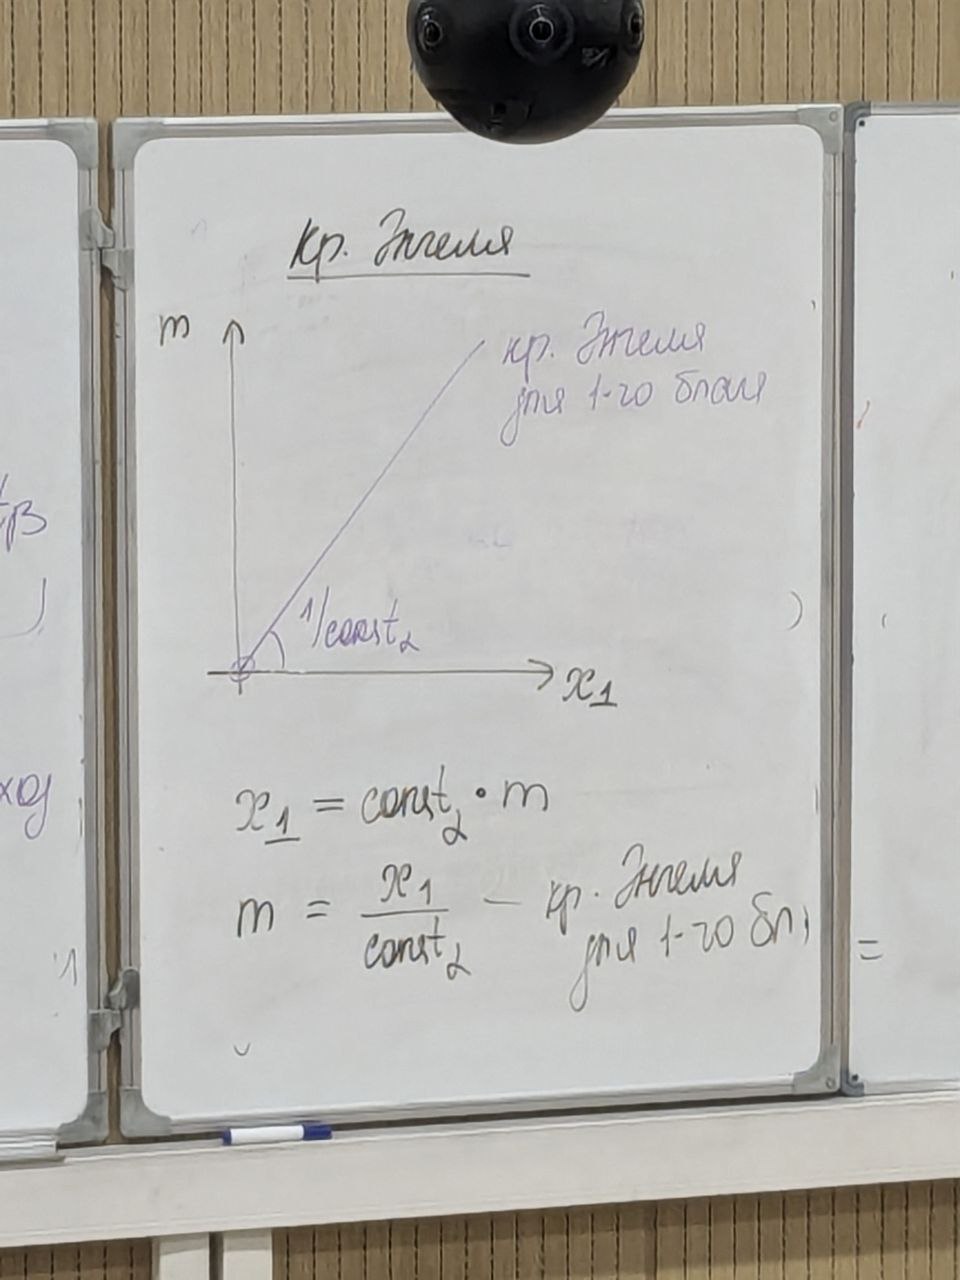 кр. Энгеля
m
кр. Энгеля
для 1-го блага
1/const₂
x₁
x₁ = const₂ · m
m = x₁/const₂ — кр. Энгеля
для 1-го бл.
тв
ход
=